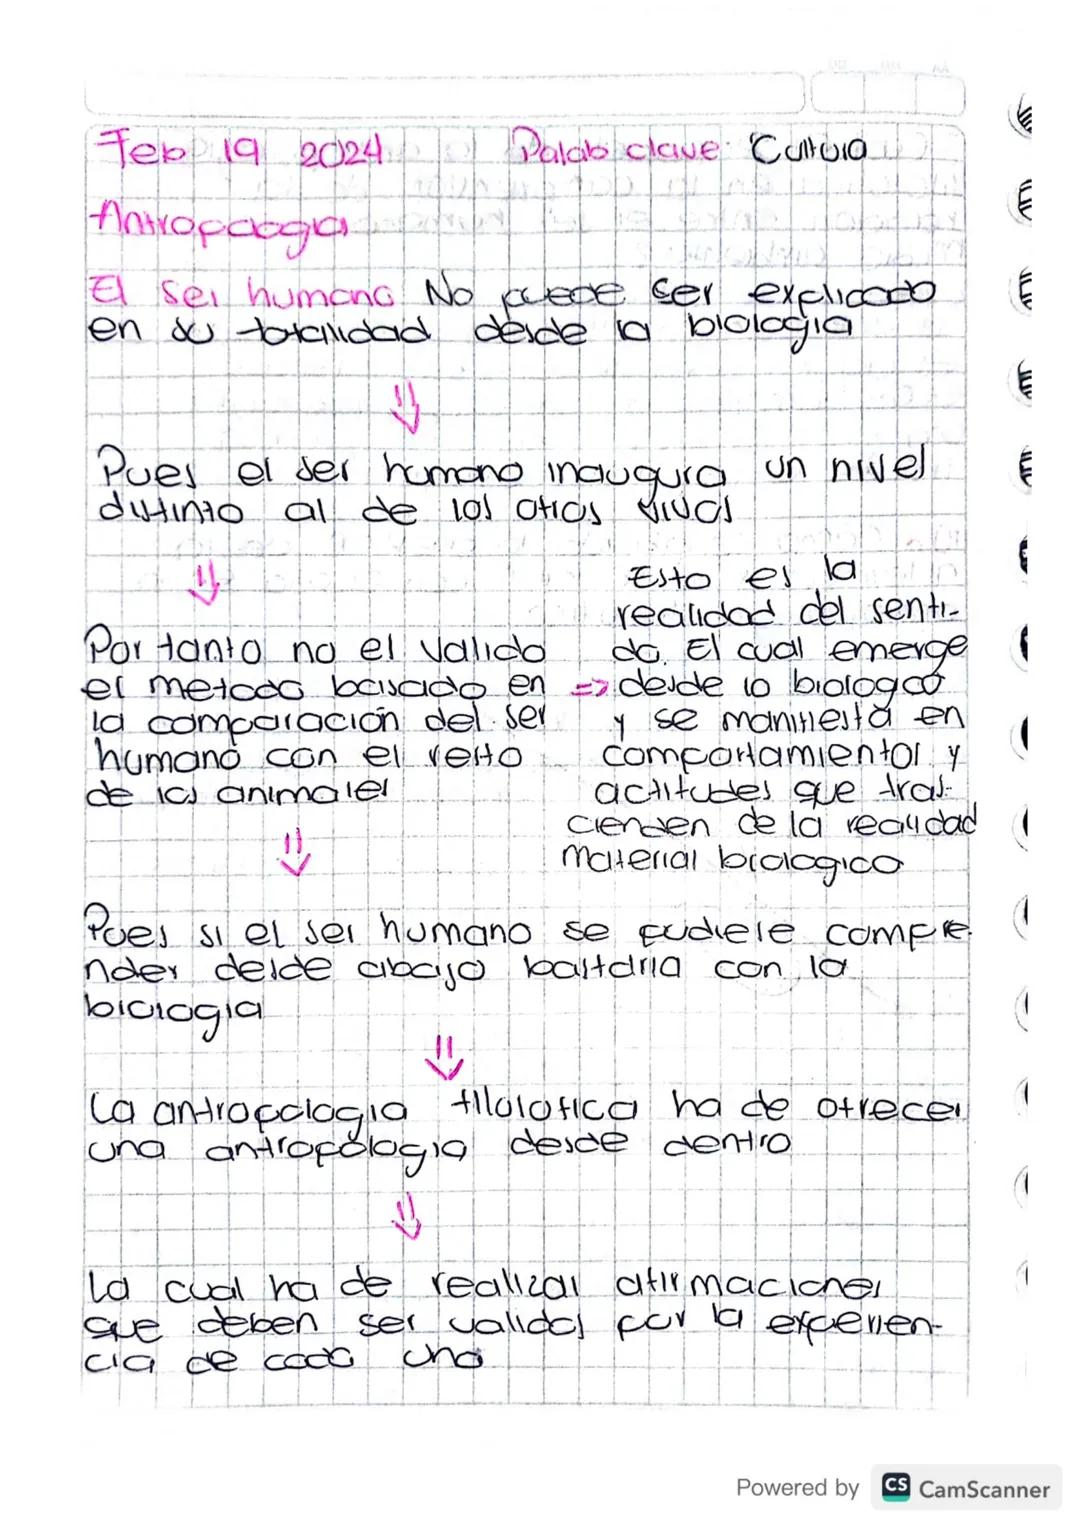 Feb 19 2024 Palab clave: Cultura
Antropología
El ser humano No puede ser explicado
en su totalidad desde la biología
⇓
Pues el ser humano inaugura un nivel
distinto al de los otros vivos
⇓
Por tanto no el valido
el metodo basado en
la comparación del ser
humano con el resto
de los animales
⇒
Esto es la
realidad del senti-
do. El cual emerge
desde lo biologico
y se manifiesta en
comportamientos y
actitudes que tras-
cienden de la realidad
material biologico
⇓
Pues si el ser humano se pudiese compre
nder desde abajo bastaria con la
biologia
⇓
La antropologia filosofica ha de ofrecer
una antropologia desde dentro
⇓
La cual ha de realizar afirmaciones
que deben ser validas por la experien-
cia de cada uno
Powered by CS CamScanner